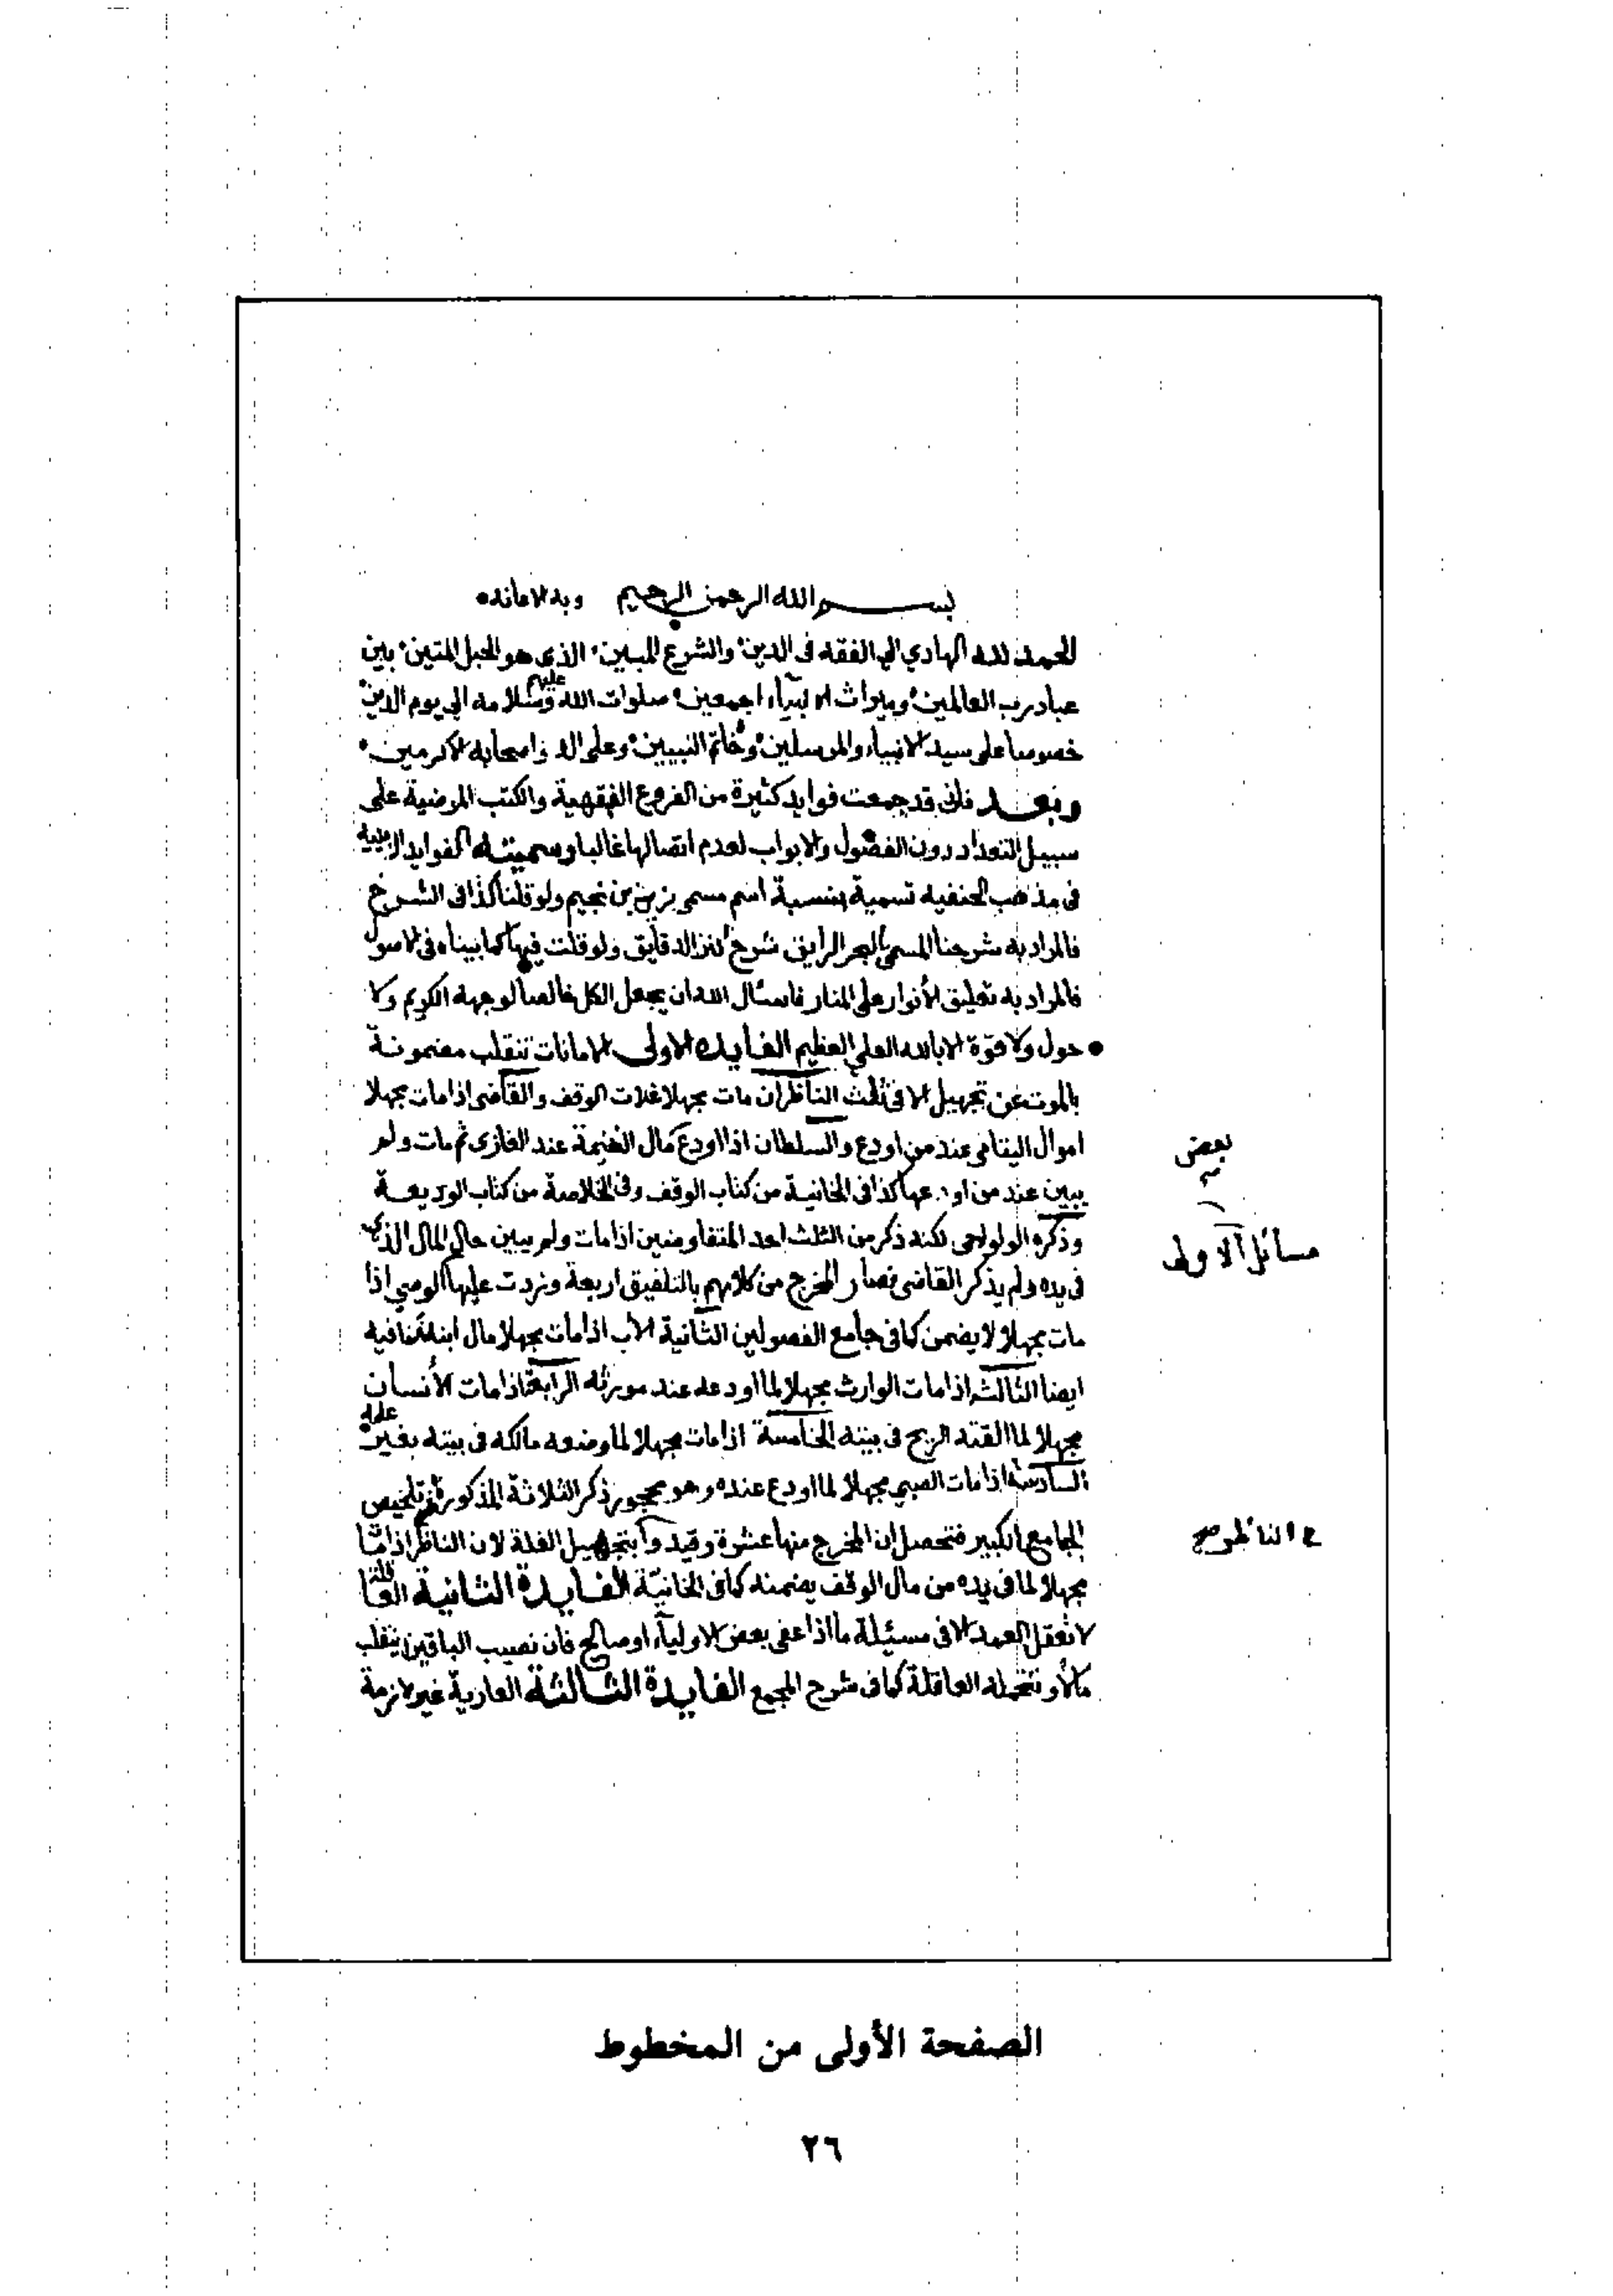 بسم الله الرحمن الرحيم وبه الاعانه
الحمد لله الهادي الي الفقه في الدين والشرع المبين الذي هو الحبل المتين بين
عباد رب العالمين وميراث الانبيآء اجمعين صلوات الله عليهم وسلامه الي يوم الدين
خصوصا على سيد الانبياء والمرسلين وخاتم النبيين وعلى اله واصحابه الاكرمين
وبعد فاني قد جمعت فوايد كثيرة من الفروع الفقهية والكتب المرضية على
سبيل التعداد دون الفصول والابواب لعدم اتصالها غالبا وسميته الفوايد الزينية
في مذهب الحنفيه تسمية بنسبة اسم مسمى بزين بن نجيم ولو قلنا كذا في الشرح
فالمراد به شرحنا المسمى بالبحر الرايق شرح كنز الدقايق ولو قلت فيها كما بيناه في الاصول
فالمراد به تعليق الأنوار على المنار فاسئال الله ان يجعل الكل خالصا لوجهه الكريم ولا
حول ولا قوة الا بالله العلي العظيم الفايده الاولى الامانات تنقلب مضمونة
بالموت عن تجهيل الا في ثلث الناظر ان مات مجهلا غلات الوقف والقاضي اذا مات مجهلا
اموال اليتامي عند من اودع والسلطان اذا اودع مال الغنيمة عند الغازي ثم مات ولم
يبين عند من اودعها كذا في الخانية من كتاب الوقف وفي الخلاصة من كتاب الوديعة
وذكره الولوالجي لكنه ذكر من الثلث احد المتفاوضين اذا مات ولم يبين حال المال الذي
في يده ولم يذكر القاضي فصار المخرج من كلامهم بالتلفيق اربعة وزدت عليها الوصي اذا
مات مجهلا لا يضمن كما في جامع الفصولين الثانية الاب اذا مات مجهلا مال ابنه فيه
ايضا الثالثه اذا مات الوارث مجهلا لما اودعه عند مورثه الرابعة اذا مات الأنسان
مجهلا لما القته الريح في بيته الخامسة اذا مات مجهلا لما وضعه مالكه في بيته بغير علمه
السادسة اذا مات الصبي مجهلا لما اودع عنده وهو محجور ذكر الثلاثة المذكورة في تلخيص
الجامع الكبير فتحصل ان المخرج منها عشرة وقيدوا بتجهيل الغلة لان الناظر اذا مات
مجهلا لما في يده من مال الوقف يضمنه كما في الخانية الفايدة الثانية العاقلة
لا تعقل العمد الا في مسئلة ما اذا عفى بعض الاوليآء او صالح فان نصيب الباقين ينقلب
مالا وتتحمله العاقلة كما في شرح المجمع الفايدة الثالثة العارية غير لازمة
بعض
مسائل الاولى
الناظر صح
الصفحة الأولى من المخطوط
٢٦